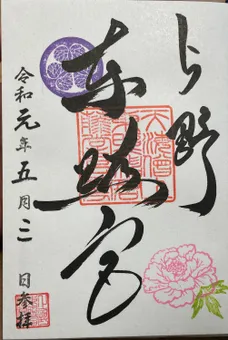 上野
東照宮
令和元年五月二日参拝